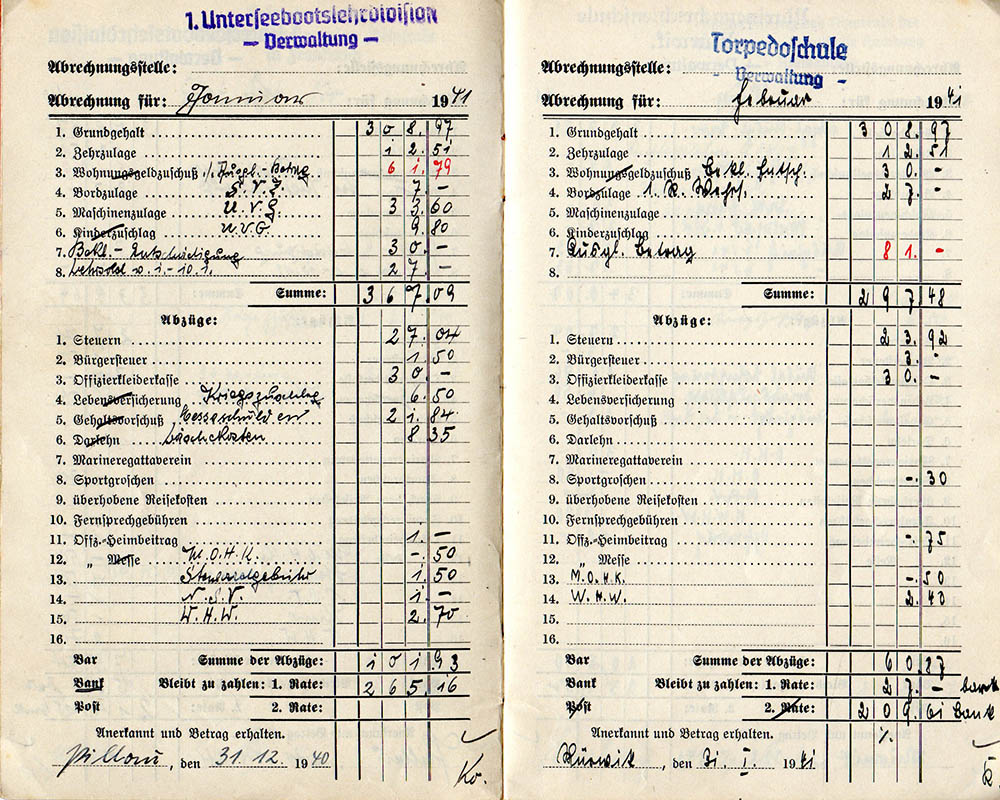 1. Unterseebootslehrdivision
– Verwaltung –
Abrechnungsstelle:
Abrechnung für: Januar 1941
1. Grundgehalt 308.97
2. Zehrzulage 12.51
3. Wohnungsgeldzuschuß ./. Ausgl.-Betrag 61.79
4. Bordzulage 7 –
5. Maschinenzulage 33.60
6. Kinderzuschlag U.V.G. 9.80
7. Bekl.-Entschädigung 30.–
8. Wehrsold v. 1.-10.1. 27 –
Summe: 367.09
Abzüge:
1. Steuern 27.04
2. Bürgersteuer 1.50
3. Offizierkleiderkasse 30.–
4. Lebensversicherung Kriegszuschlag 6.50
5. Gehaltsvorschuß Messeschulden 21.84
6. Darlehn Wäschekosten 8.35
7. Marineregattaverein
8. Sportgroschen
9. überhobene Reisekosten
10. Fernsprechgebühren
11. Offz.-Heimbeitrag 1.–
12. „ Messe M.O.H.K. –.50
13. 1.50
14. N.S.V. 1 –
15. W.H.W. 2.70
16.
Var Summe der Abzüge: 101 93
Bank Bleibt zu zahlen: 1. Rate: 265.16
Post 2. Rate:
Anerkannt und Betrag erhalten.
Pillau, den 31.12. 1940
Ko.
Torpedoschule
– Verwaltung –
Abrechnungsstelle:
Abrechnung für: Februar 1941
1. Grundgehalt 308.97
2. Zehrzulage 12.51
3. Wohnungsgeldzuschuß Bekl. Entsch. 30.–
4. Bordzulage 1. R. Wehrs. 27.–
5. Maschinenzulage
6. Kinderzuschlag
7. Ausgl. Betrag 81.–
8.
Summe: 297.48
Abzüge:
1. Steuern 23.92
2. Bürgersteuer 3.–
3. Offizierkleiderkasse 30.–
4. Lebensversicherung
5. Gehaltsvorschuß
6. Darlehn
7. Marineregattaverein
8. Sportgroschen –.30
9. überhobene Reisekosten
10. Fernsprechgebühren
11. Offz.-Heimbeitrag –.75
12. „ Messe
13. M.O.H.K. –.50
14. W.H.W. 2.40
15.
16.
Var Summe der Abzüge: 60.87
Bank Bleibt zu zahlen: 1. Rate: 27.–
Post 2. Rate: 209.61 Bank
Anerkannt und Betrag erhalten.
Mürwik, den 31. I. 1941